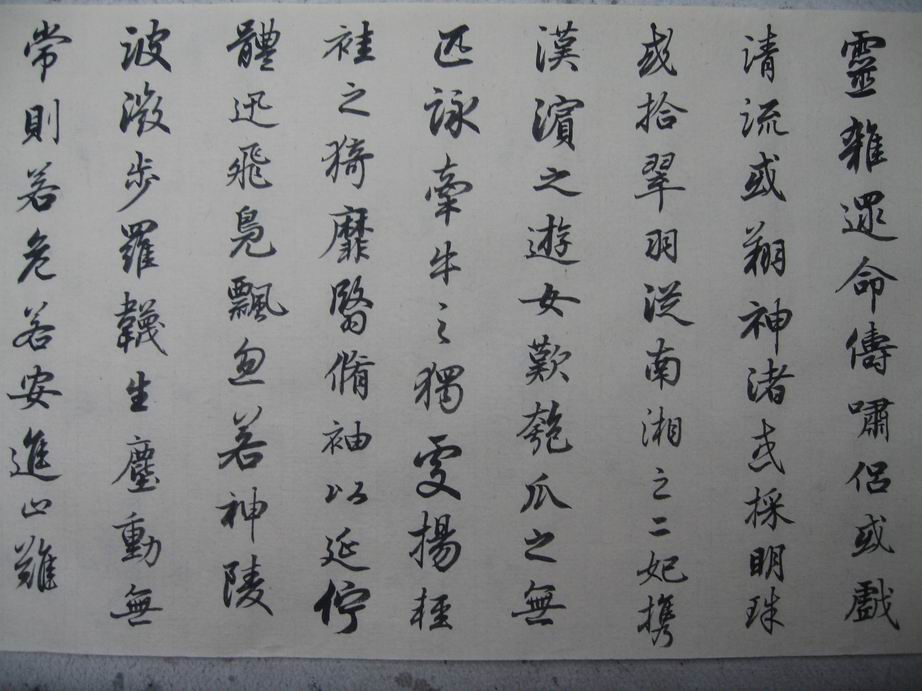 靈雜遝命儔嘯侶或戲
清流或翔神渚或採明珠
或拾翠羽從南湘之二妃攜
漢濱之遊女歎匏瓜之無
匹詠牽牛之獨處揚輕
袿之猗靡翳脩袖以延佇
體迅飛鳧飄忽若神陵
波微步羅韤生塵動無
常則若危若安進止難